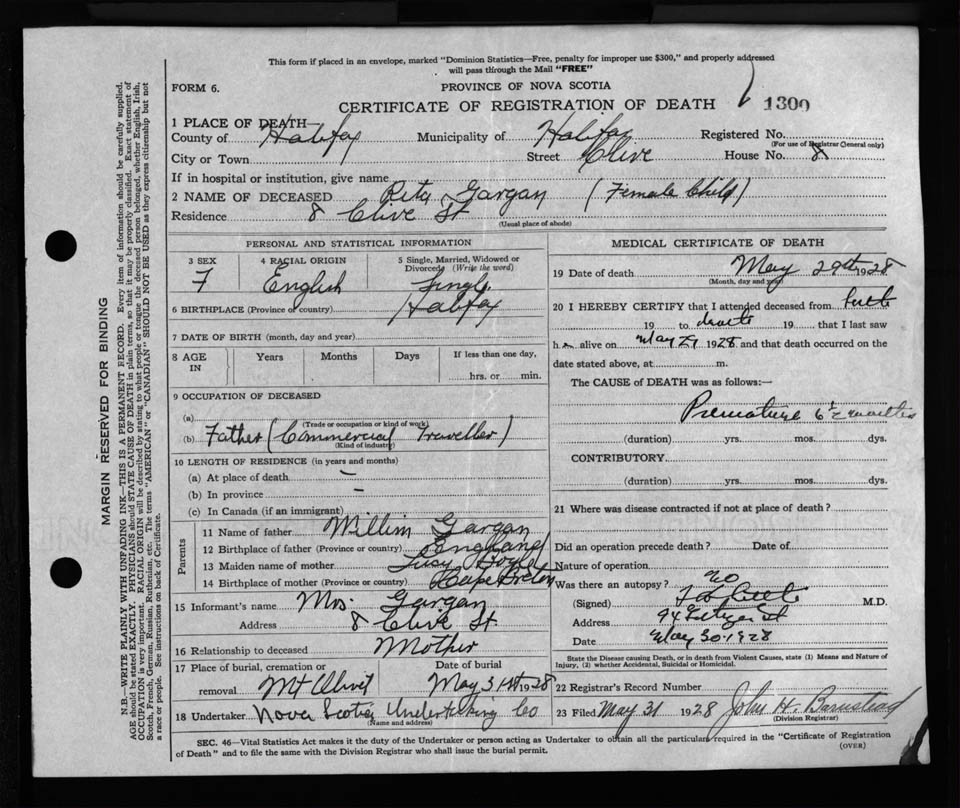 This form if placed in an envelope, marked "Dominion Statistics—Free, penalty for improper use $300," and properly addressed
will pass through the Mail "FREE"
FORM 6.
PROVINCE OF NOVA SCOTIA
CERTIFICATE OF REGISTRATION OF DEATH 1300
1 PLACE OF DEATH—
County of Halifax Municipality of Halifax Registered No.
(For use of Registrar General only)
City or Town Street Clive House No. 8
If in hospital or institution, give name
2 NAME OF DECEASED Rita Gargan (Female Child)
Residence 8 Clive St
(Usual place of abode)
PERSONAL AND STATISTICAL INFORMATION
3 SEX 4 RACIAL ORIGIN 5 Single, Married, Widowed or
Divorced (Write the word)
F English Single
6 BIRTHPLACE (Province or country) Halifax
7 DATE OF BIRTH (month, day and year)
8 AGE IN Years Months Days If less than one day,
hrs. or min.
9 OCCUPATION OF DECEASED
(a)
(Trade or occupation or kind of work)
(b) Father (Commercial Traveller)
(Kind of industry)
10 LENGTH OF RESIDENCE (in years and months)
(a) At place of death –
(b) In province –
(c) In Canada (if an immigrant)
Parents
11 Name of father Willim Gargan
12 Birthplace of father (Province or country) England
13 Maiden name of mother Lucy
14 Birthplace of mother (Province or country) Cape Breton
15 Informant's name Mrs. Gargan
Address 8 Clive St.
16 Relationship to deceased Mother
17 Place of burial, cremation or Date of burial
removal Mt Olivet May 31st 1928
18 Undertaker Nova Scotia Undertaking Co
(Name and address)
MEDICAL CERTIFICATE OF DEATH
19 Date of death May 29th 1928
(Month, day and year)
20 I HEREBY CERTIFY that I attended deceased from birth
19 to death 19 that I last saw
h alive on May 29 1928 and that death occurred on the
date stated above, at m.
The CAUSE of DEATH was as follows:—
Premature 6½ months
(duration) yrs. mos. dys.
CONTRIBUTORY
(duration) yrs. mos. dys.
21 Where was disease contracted if not at place of death?
Did an operation precede death? Date of
Nature of operation
Was there an autopsy? No
(Signed) M.D.
Address 94 St
Date May 30-1928
State the Disease causing Death, or in death from Violent Causes, state (1) Means and Nature of
Injury, (2) whether Accidental, Suicidal or Homicidal.
22 Registrar's Record Number
23 Filed May 31 1928 John H. Barnstead
(Division Registrar)
SEC. 46—Vital Statistics Act makes it the duty of the Undertaker or person acting as Undertaker to obtain all the particulars required in the "Certificate of Registration
of Death" and to file the same with the Division Registrar who shall issue the burial permit. (OVER)
MARGIN RESERVED FOR BINDING
N.B.—WRITE PLAINLY WITH UNFADING INK—THIS IS A PERMANENT RECORD. Every item of information should be carefully supplied.
AGE should be stated EXACTLY. PHYSICIANS should STATE CAUSE OF DEATH in plain terms, so that it may be properly classified. Exact statement of
OCCUPATION is very important. RACIAL ORIGIN will be described by stating to what people or tongue the deceased person belonged, whether English, Irish,
Scotch, French, German, Russian, Ruthenian, etc. The terms "AMERICAN" or "CANADIAN" SHOULD NOT BE USED as they express citizenship but not
a race or people. See instructions on back of Certificate.